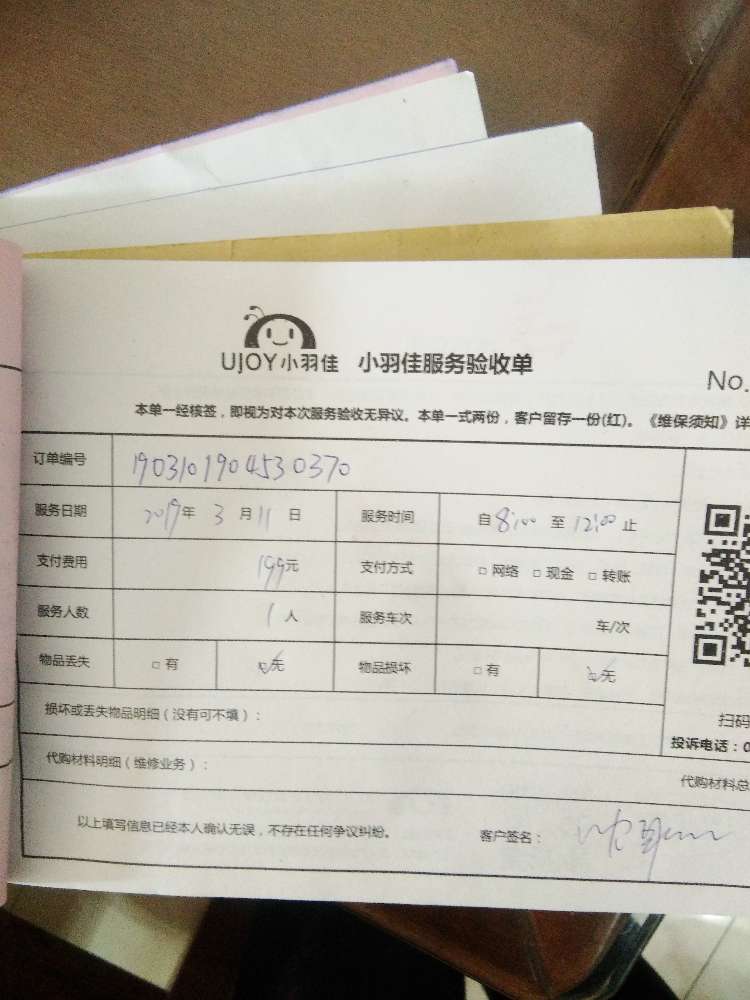 UJOY小羽佳 小羽佳服务验收单
No.
本单一经核签，即视为对本次服务验收无异议。本单一式两份，客户留存一份(红)。《维保须知》详
订单编号 1903101904530370
服务日期 2019年 3月 11日 服务时间 自8:00 至 12:00 止
支付费用 199元 支付方式 □网络 □现金 □转账
服务人数 1人 服务车次 车/次
物品丢失 □有 ☑无 物品损坏 □有 ☑无
扫码
损坏或丢失物品明细（没有可不填）：
投诉电话：0
代购材料明细（维修业务）：
代购材料总
以上填写信息已经本人确认无误，不存在任何争议纠纷。 客户签名：